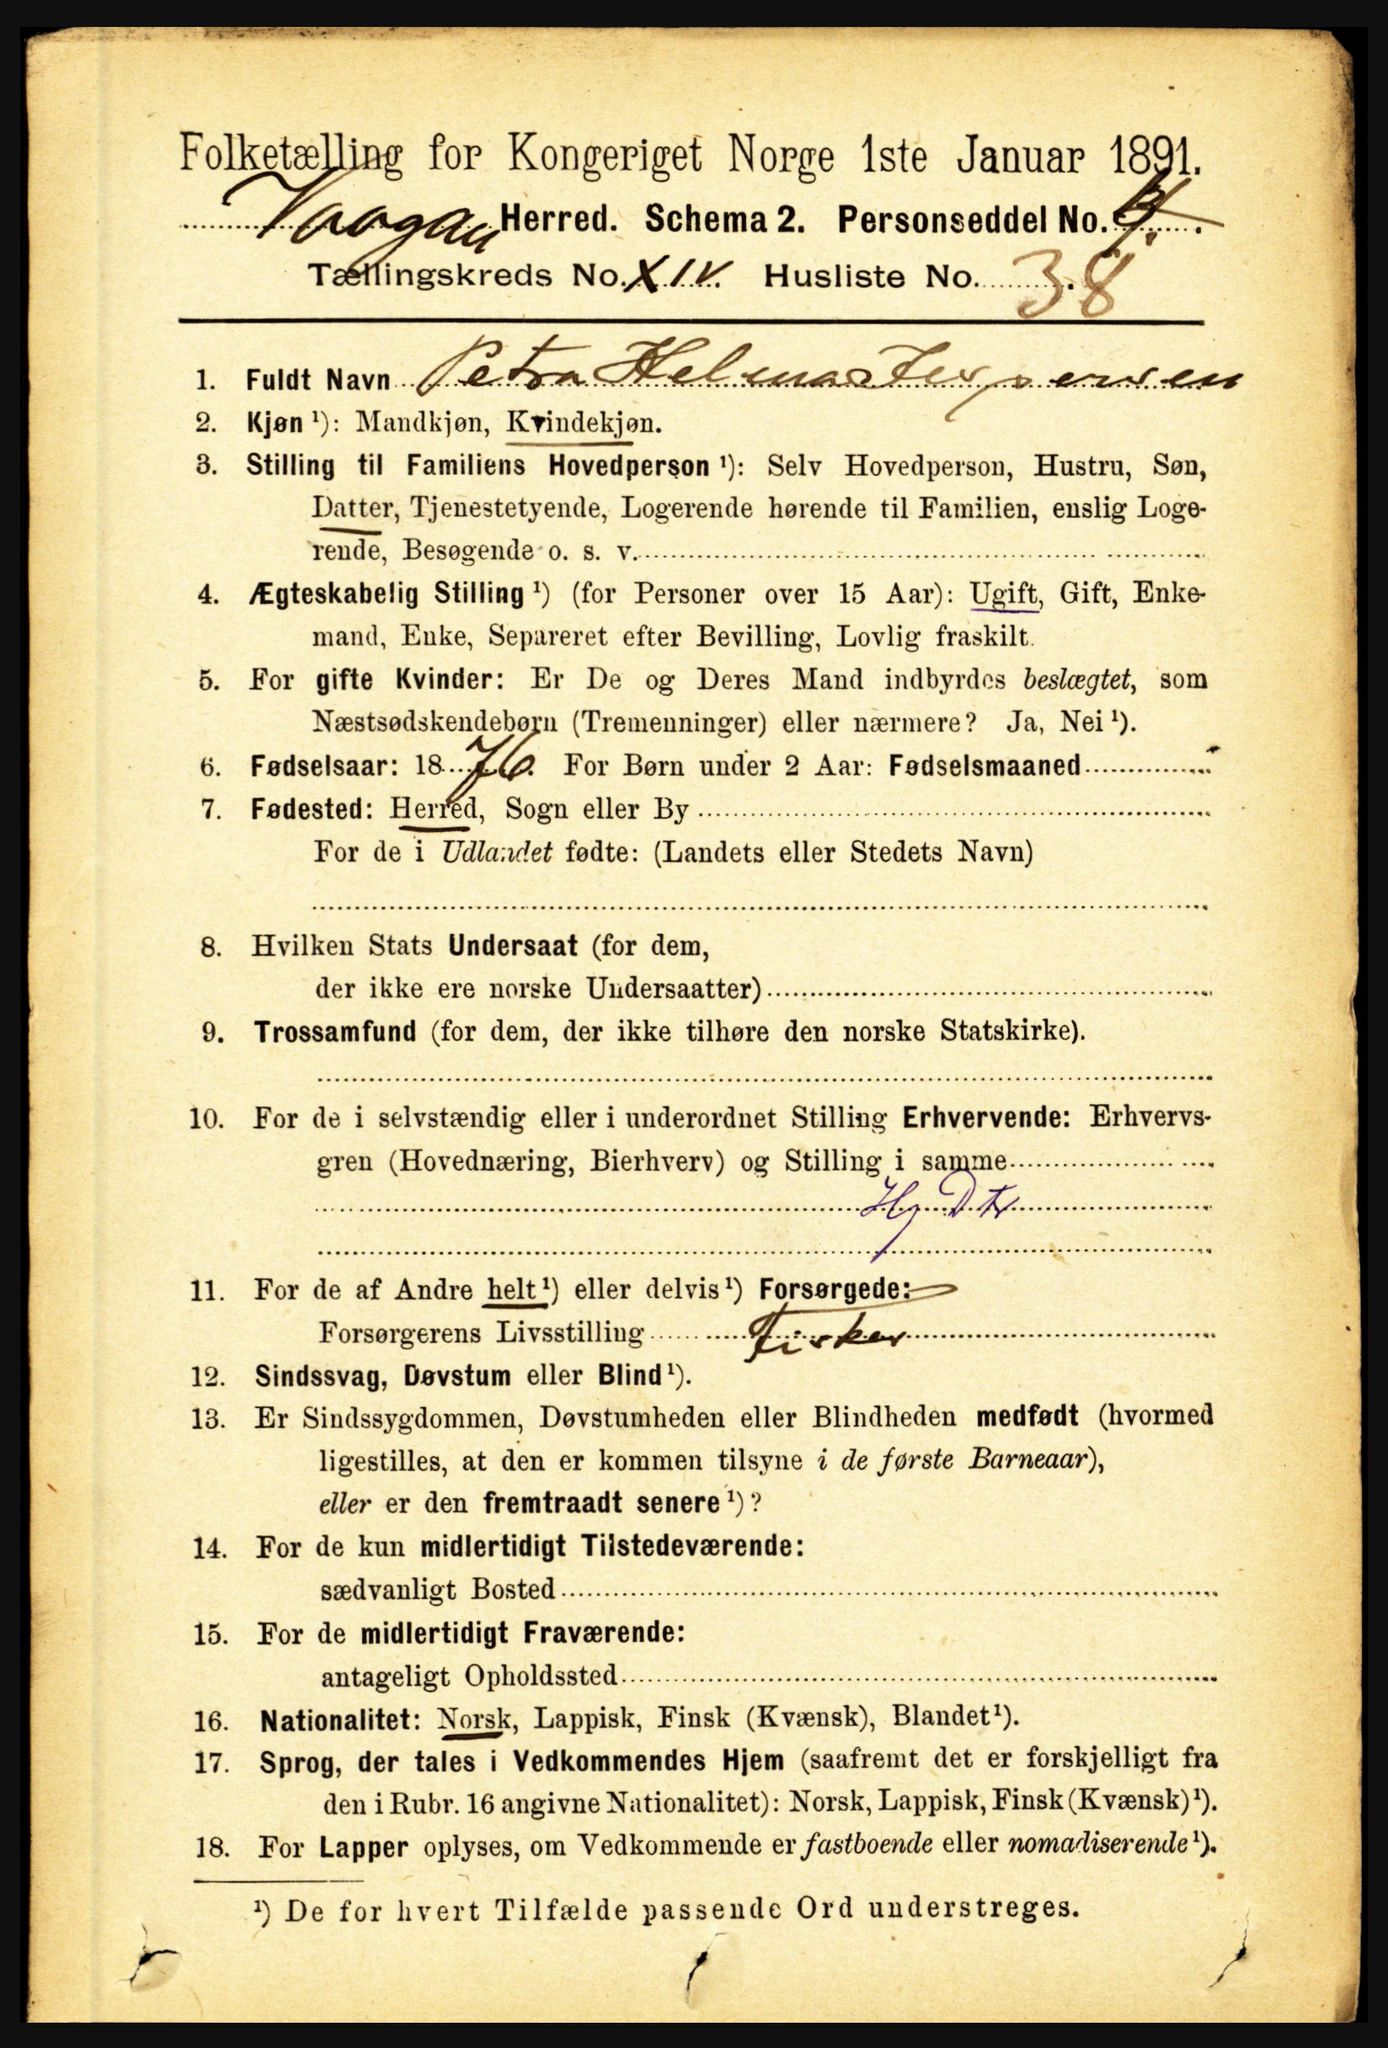 Folketælling for Kongeriget Norge 1ste Januar 1891.
Vaagan Herred. Schema 2. Personseddel No. 4.
Tællingskreds No. XIV. Husliste No. 38
1. Fuldt Navn Petra Helma Jespersen
2. Kjøn ¹): Mandkjøn, Kvindekjøn.
3. Stilling til Familiens Hovedperson ¹): Selv Hovedperson, Hustru, Søn,
Datter, Tjenestetyende, Logerende hørende til Familien, enslig Loge-
rende, Besøgende o. s. v.
4. Ægteskabelig Stilling ¹) (for Personer over 15 Aar): Ugift, Gift, Enke-
mand, Enke, Separeret efter Bevilling, Lovlig fraskilt.
5. For gifte Kvinder: Er De og Deres Mand indbyrdes beslægtet, som
Næstsødskendebørn (Tremenninger) eller nærmere? Ja, Nei ¹).
6. Fødselsaar: 1876. For Børn under 2 Aar: Fødselsmaaned
7. Fødested: Herred, Sogn eller By
For de i Udlandet fødte: (Landets eller Stedets Navn)
8. Hvilken Stats Undersaat (for dem,
der ikke ere norske Undersaatter)
9. Trossamfund (for dem, der ikke tilhøre den norske Statskirke).
10. For de i selvstændig eller i underordnet Stilling Erhvervende: Erhvervs-
gren (Hovednæring, Bierhverv) og Stilling i samme
Hj Dtr
11. For de af Andre helt ¹) eller delvis ¹) Forsørgede:
Forsørgerens Livsstilling Fisker
12. Sindssvag, Døvstum eller Blind ¹).
13. Er Sindssygdommen, Døvstumheden eller Blindheden medfødt (hvormed
ligestilles, at den er kommen tilsyne i de første Barneaar),
eller er den fremtraadt senere ¹)?
14. For de kun midlertidigt Tilstedeværende:
sædvanligt Bosted
15. For de midlertidigt Fraværende:
antageligt Opholdssted
16. Nationalitet: Norsk, Lappisk, Finsk (Kvænsk), Blandet ¹).
17. Sprog, der tales i Vedkommendes Hjem (saafremt det er forskjelligt fra
den i Rubr. 16 angivne Nationalitet): Norsk, Lappisk, Finsk (Kvænsk) ¹).
18. For Lapper oplyses, om Vedkommende er fastboende eller nomadiserende ¹).
¹) De for hvert Tilfælde passende Ord understreges.